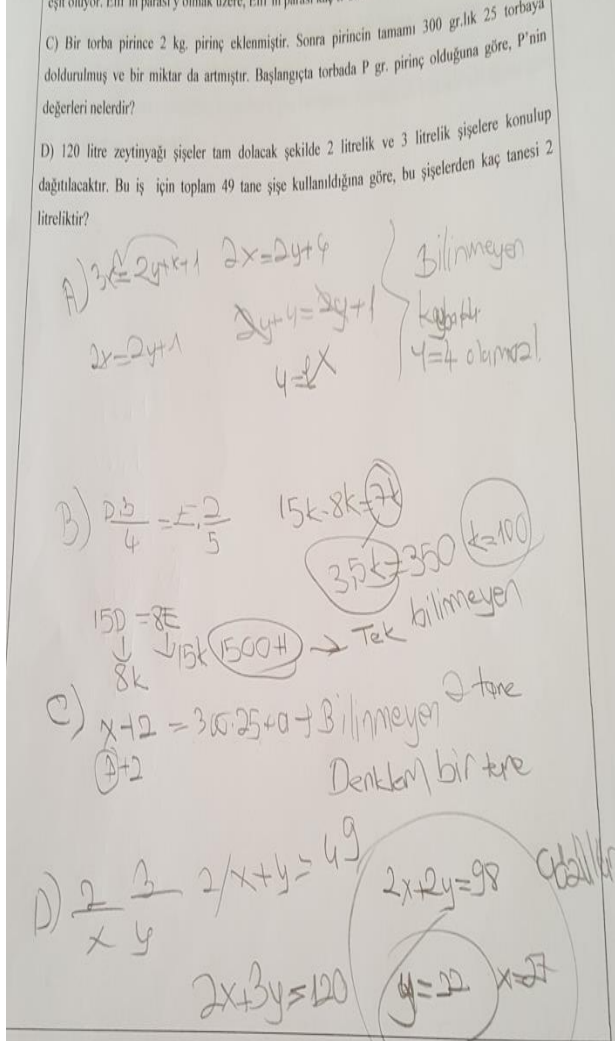 eşit oluyor.
C) Bir torba pirince 2 kg. pirinç eklenmiştir. Sonra pirincin tamamı 300 gr.lık 25 torbaya
doldurulmuş ve bir miktar da artmıştır. Başlangıçta torbada P gr. pirinç olduğuna göre, P'nin
değerleri nelerdir?
D) 120 litre zeytinyağı şişeler tam dolacak şekilde 2 litrelik ve 3 litrelik şişelere konulup
dağıtılacaktır. Bu iş için toplam 49 tane şişe kullanıldığına göre, bu şişelerden kaç tanesi 2
litreliktir?
A) 3x=2y+x+1 2x=2y+4 Bilinmeyen
2x=2y+1 2y+4=2y+1
y=4 olamaz!
B) D.3/4 = E.2/5 15k-8k=7k
3,5k=350 k=100
15D=8E
8k 15k 1500 tl → Tek bilinmeyen
C) x+2 = 300.25+a → Bilinmeyen 2 tane
P+2 Denklem bir tane
D) 2/x 3/y 2/x+y=49
2x+2y=98
2x+3y=120 y=22 x=27